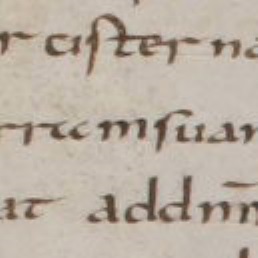 r cister na
rram suam
at addnm̄